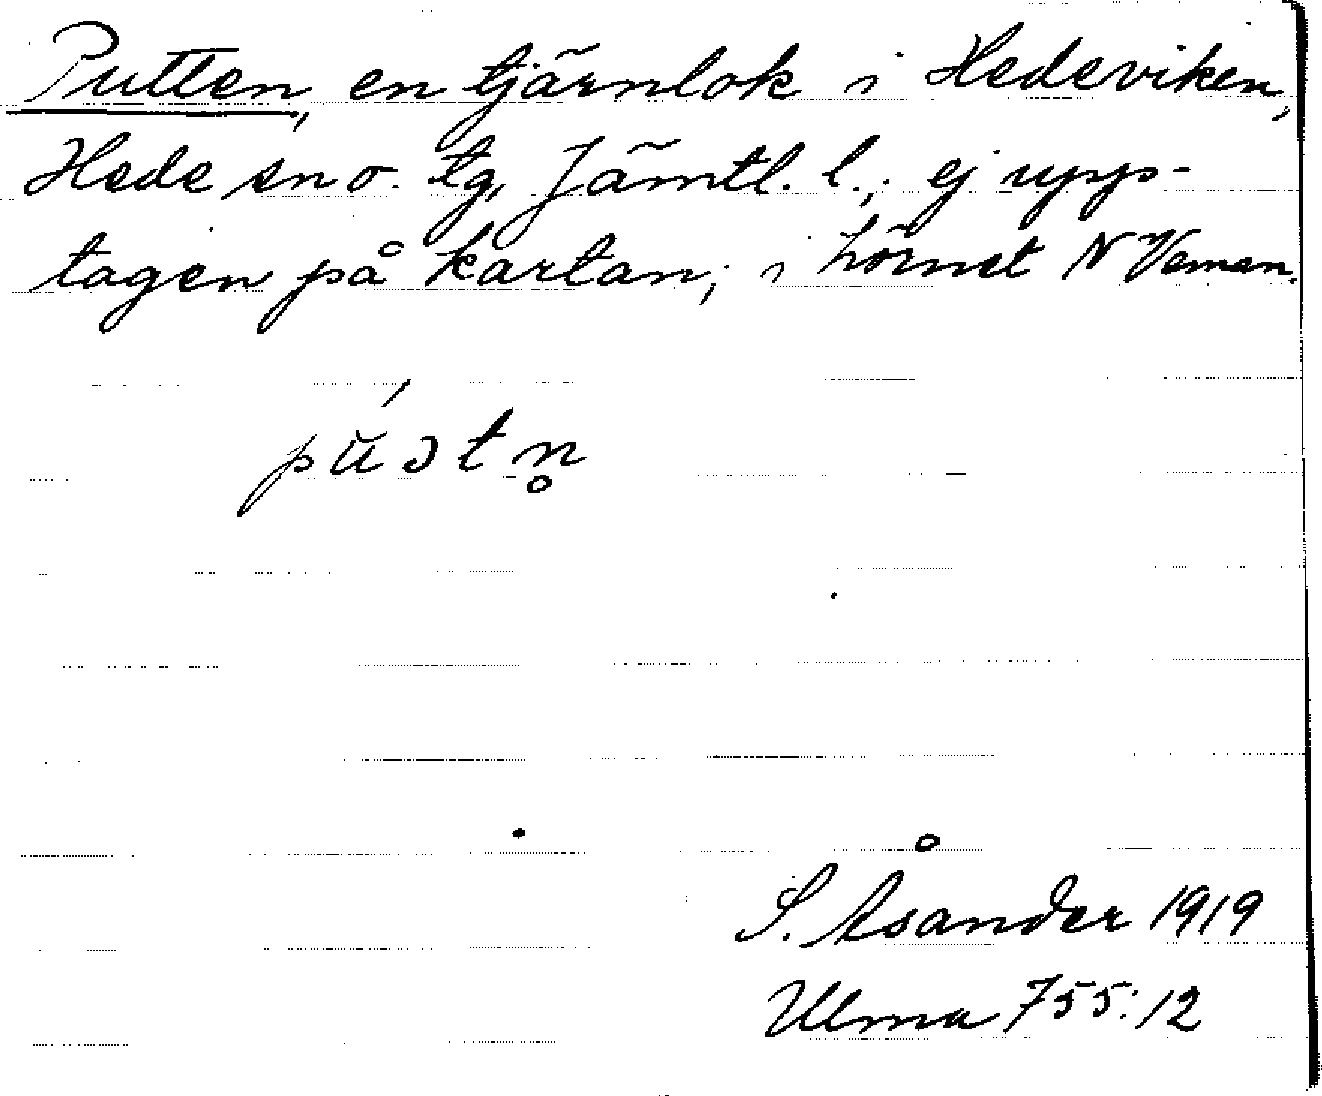 Putten, en tjärnlok i Hedeviken,
Hede sn o. tg, Jämtl. l.; ej upp-
tagen på kartan; i hörnet N Veman.
pŭ́ɔtn̥
S. Åsander 1919
Ulma 755:12